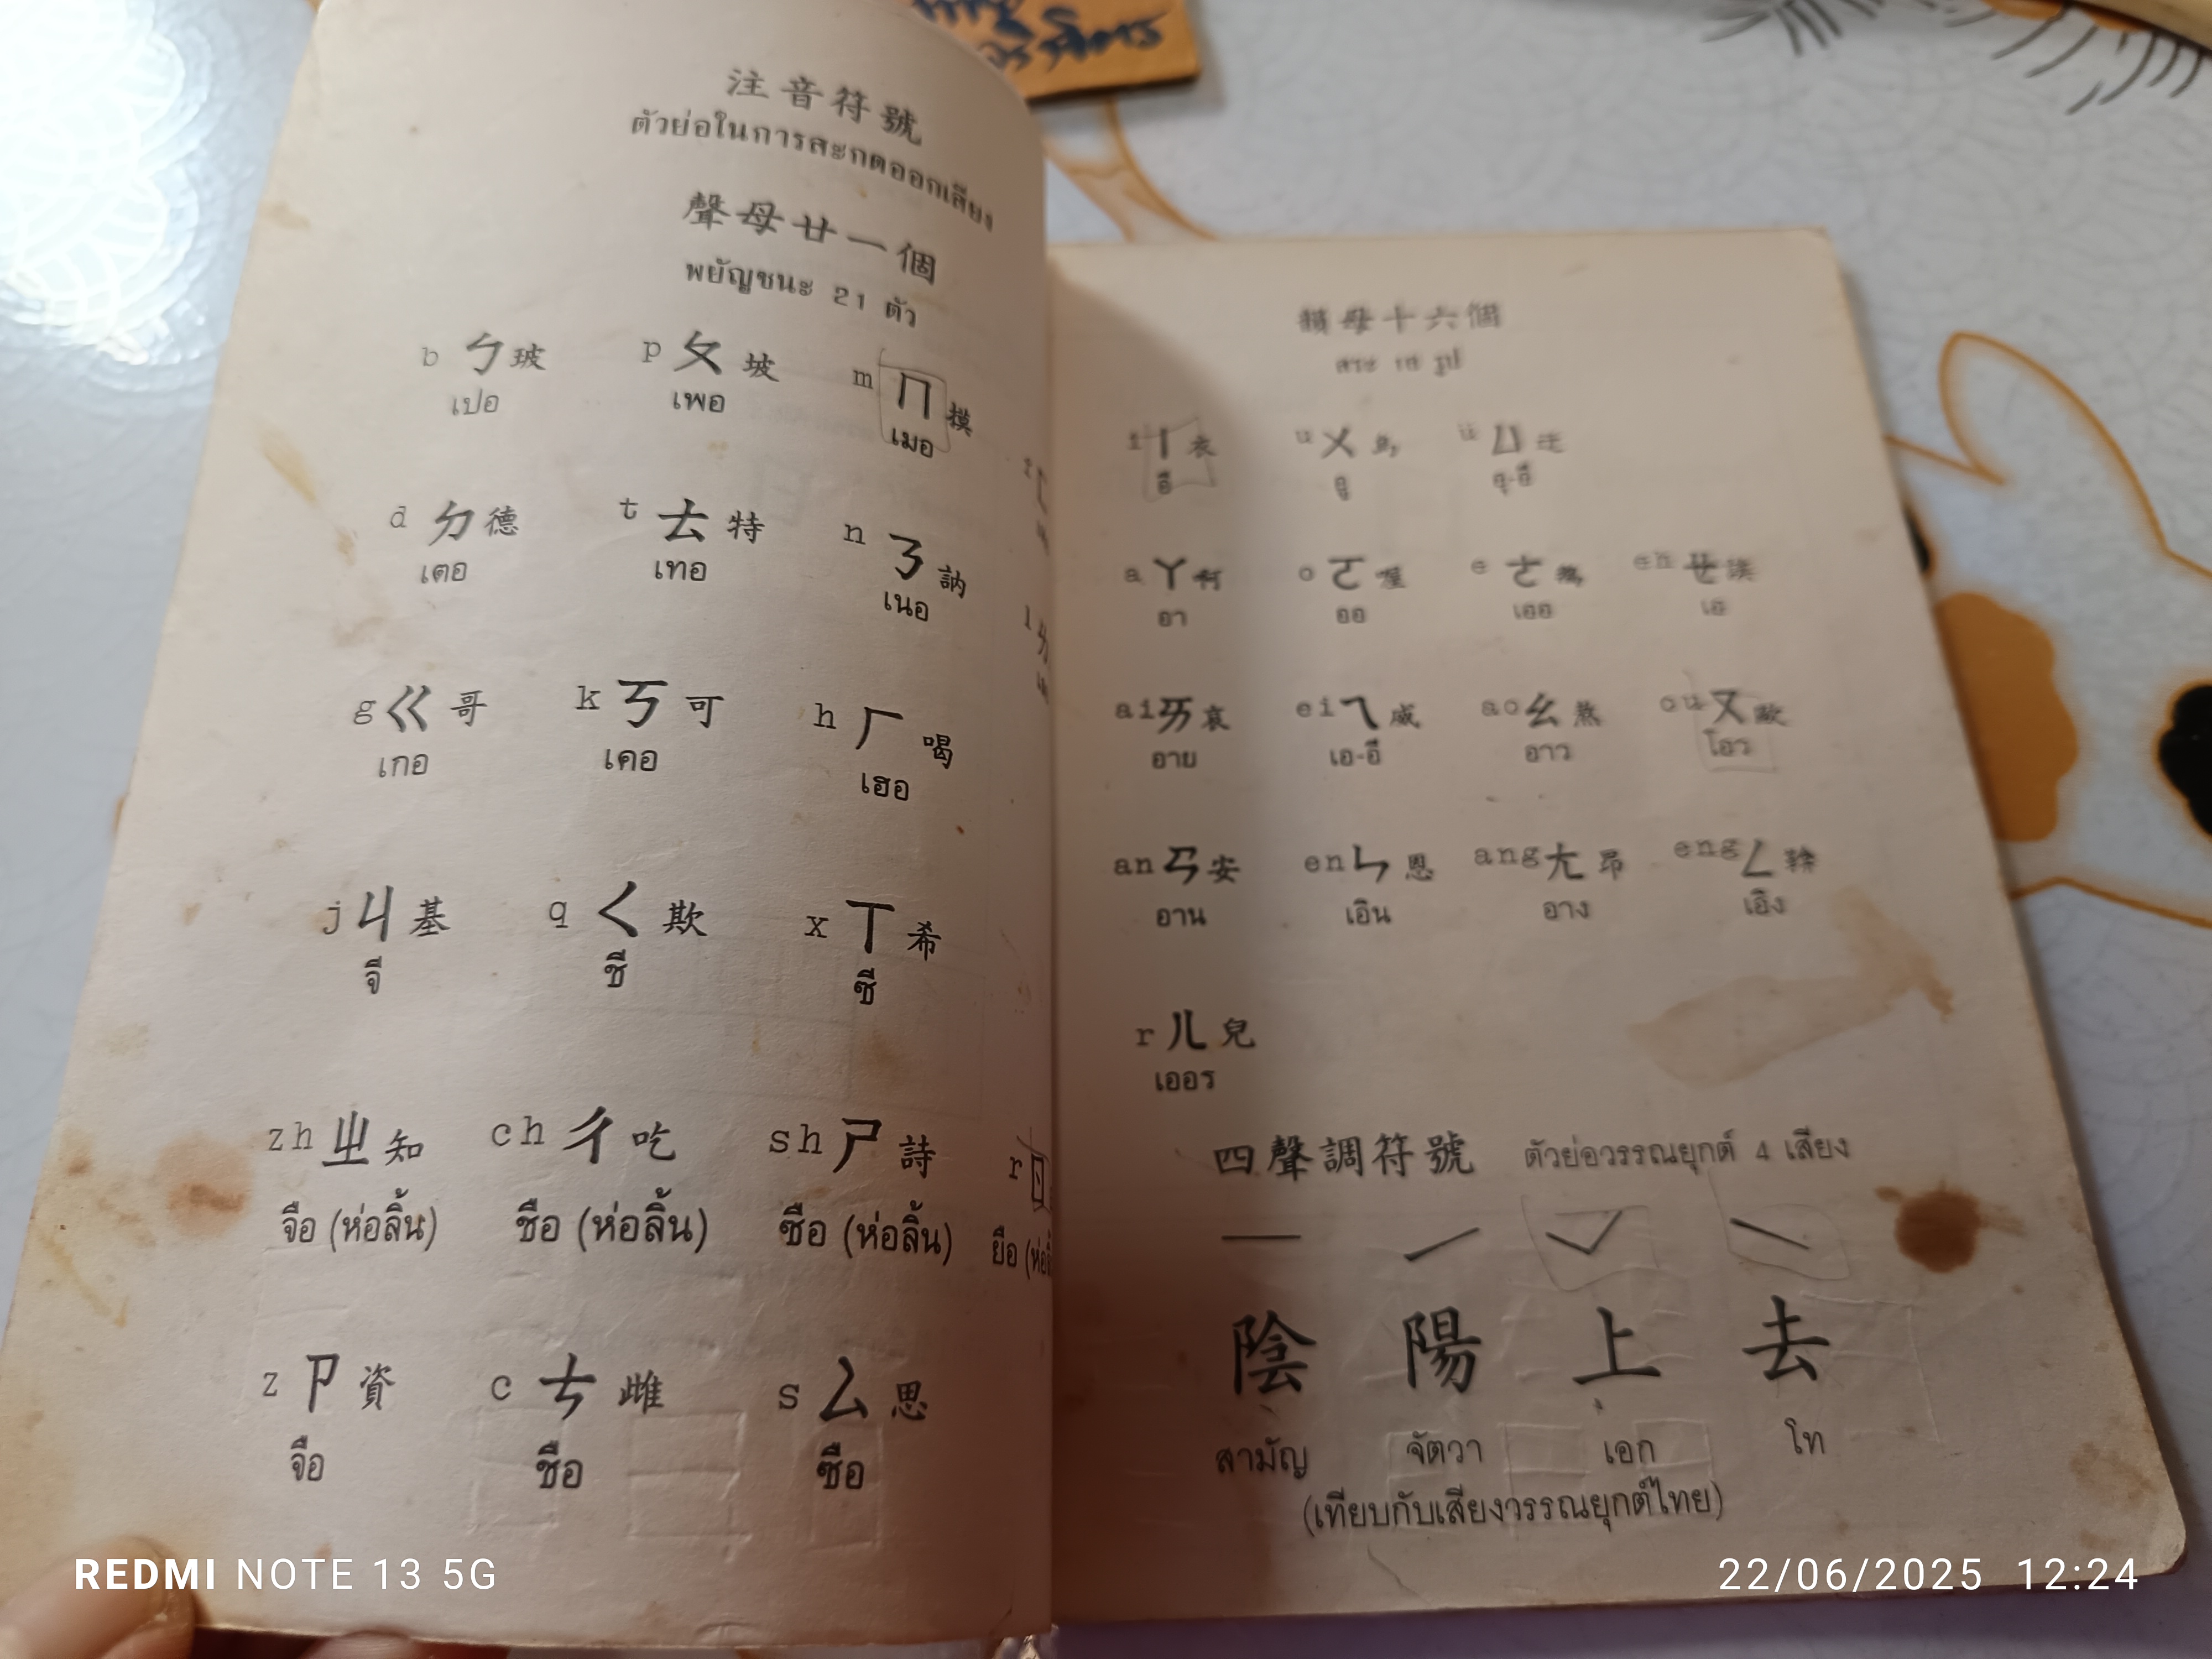 注音符號
ตัวย่อในการสะกดออกเสียง
聲母廿一個
พยัญชนะ 21 ตัว
b ㄅ 玻 p ㄆ 坡 m ㄇ 摸
เปอ เพอ เมอ
d ㄉ 德 t ㄊ 特 n ㄋ 訥
เตอ เทอ เนอ
l ㄌ
g ㄍ 哥 k ㄎ 可 h ㄏ 喝
เกอ เคอ เฮอ
j ㄐ 基 q ㄑ 欺 x ㄒ 希
จี ชี ซี
zh ㄓ 知 ch ㄔ 吃 sh ㄕ 詩 r ㄖ
จือ (ห่อลิ้น) ชือ (ห่อลิ้น) ซือ (ห่อลิ้น) ยือ
z ㄗ 資 c ㄘ 雌 s ㄙ 思
จือ ชือ ซือ
韻母十六個
สระ ๑๖ รูป
i ㄧ 衣 u ㄨ 烏 ü ㄩ 迂
อี อู อุ-อี
a ㄚ 啊 o ㄛ 喔 e ㄜ 鵝 eh ㄝ
อา ออ เออ เอ
ai ㄞ 哀 ei ㄟ 威 ao ㄠ 熬 ou ㄡ 歐
อาย เอ-อี อาว โอว
an ㄢ 安 en ㄣ 恩 ang ㄤ 昂 eng ㄥ
อาน เอิน อาง เอิง
r ㄦ 兒
เออร
四聲調符號 ตัวย่อวรรณยุกต์ 4 เสียง
ˉ ˊ ˇ ˋ
陰 陽 上 去
สามัญ จัตวา เอก โท
(เทียบกับเสียงวรรณยุกต์ไทย)
REDMI NOTE 13 5G
22/06/2025 12:24